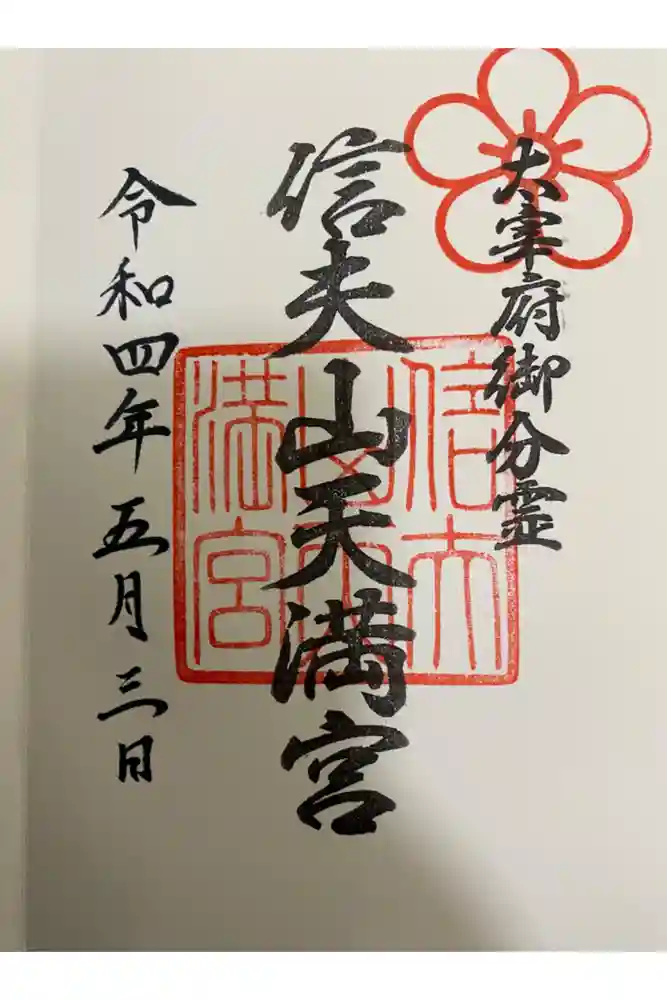 大宰府御分霊
信夫山天満宮
信夫山天満宮
令和四年五月三日